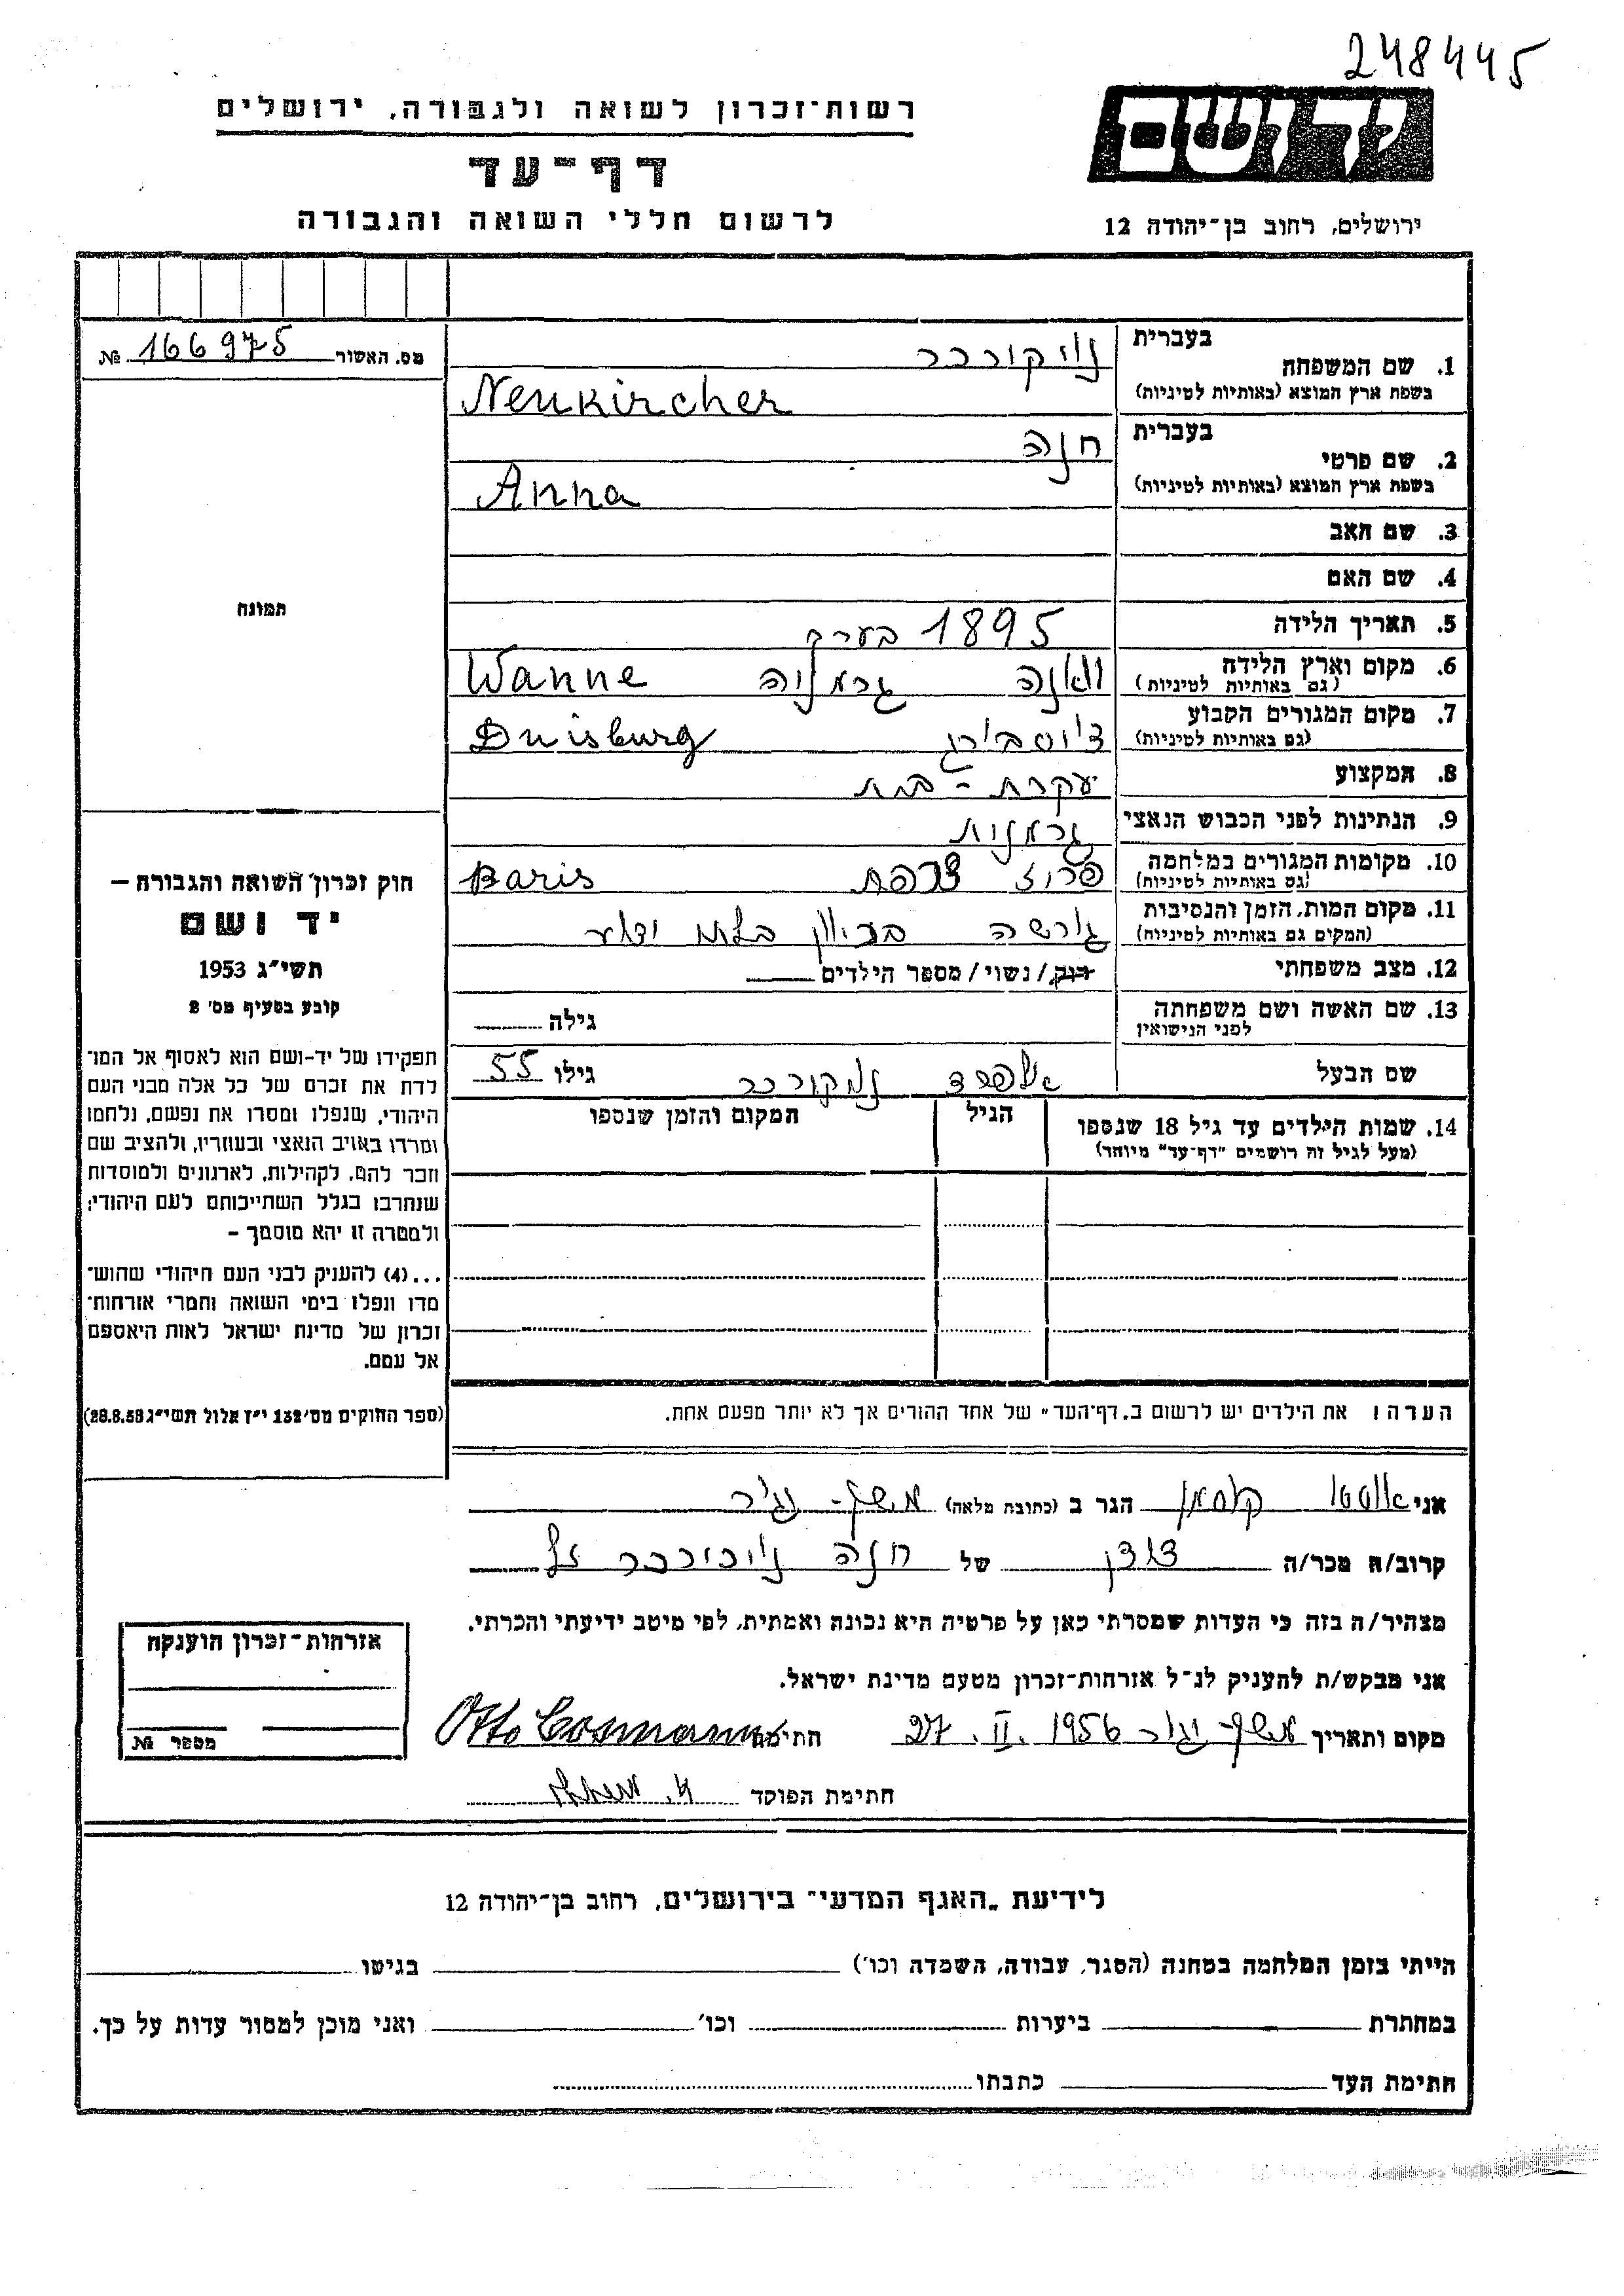 248445
רשות־זכרון לשואה ולגבורה, ירושלים
יד ושם
דף־עד
לרשום חללי השואה והגבורה
ירושלים, רחוב בן־יהודה 12
מס. האשור 166975 №
בעברית
1. שם המשפחה
בשפת ארץ המוצא (באותיות לטיניות)
נויקורכר
Neukircher
בעברית
2. שם פרטי
בשפת ארץ המוצא (באותיות לטיניות)
חנה
Anna
3. שם האב
4. שם האם
5. תאריך הלידה 1895 בערך
6. מקום וארץ הלידה
(גם באותיות לטיניות)
וואנה גרמניה Wanne
7. מקום המגורים הקבוע
(גם באותיות לטיניות)
דויסבורג Duisburg
8. המקצוע עקרת-בית
9. הנתינות לפני הכבוש הנאצי גרמנית
10. מקומות המגורים במלחמה
(גם באותיות לטיניות)
פריז צרפת Baris
11. מקום המות, הזמן והנסיבות
(המקום גם באותיות לטיניות)
גורשה בכיוון בלתי ידוע
12. מצב משפחתי רווק/נשוי/מספר הילדים
13. שם האשה ושם משפחתה
לפני הנישואין
גילה
שם הבעל אלפרד נויקורכר גילו 55
14. שמות הילדים עד גיל 18 שנספו
(מעל לגיל זה רושמים "דף־עד" מיוחד)
הגיל
המקום והזמן שנספו
תמונה
חוק זכרון השואה והגבורה —
יד ושם
תשי״ג 1953
קובע בסעיף מס׳ 2
תפקידו של יד-ושם הוא לאסוף אל המו־
לדת את זכרם של כל אלה מבני העם
היהודי, שנפלו ומסרו את נפשם, נלחמו
ומרדו באויב הנאצי ובעוזריו, ולהציב שם
וזכר להם, לקהילות, לארגונים ולמוסדות
שנחרבו בגלל השתייכותם לעם היהודי;
ולמטרה זו יהא מוסמך —
...(4) להעניק לבני העם היהודי שהוש־
מדו ונפלו בימי השואה והמרי אזרחות־
זכרון של מדינת ישראל לאות היאספם
אל עמם.
(ספר החוקים מס׳ 132 י״ז אלול תשי״ג 28.8.53)
הערה ! את הילדים יש לרשום ב„דף־העד" של אחד ההורים אך לא יותר מפעם אחת.
אני אוטו קוסמן הגר ב (כתובת מלאה) משק-יגור
קרוב/ה מכר/ה דודן של חנה נויכורכר ז"ל
מצהיר/ה בזה כי העדות שמסרתי כאן על פרטיה היא נכונה ואמתית, לפי מיטב ידיעתי והכרתי.
אני מבקש/ת להעניק לנ״ל אזרחות־זכרון מטעם מדינת ישראל.
מקום ותאריך משק יגור 27. II. 1956 חתימה Otto Cosmann
חתימת הפוקד
אזרחות־זכרון הוענקה
מספר №
לידיעת „האגף המדעי" בירושלים, רחוב בן־יהודה 12
הייתי בזמן המלחמה במחנה (הסגר, עבודה, השמדה וכו׳) בגיטו
במחתרת ביערות וכו׳ ואני מוכן למסור עדות על כך.
חתימת העד כתבתו